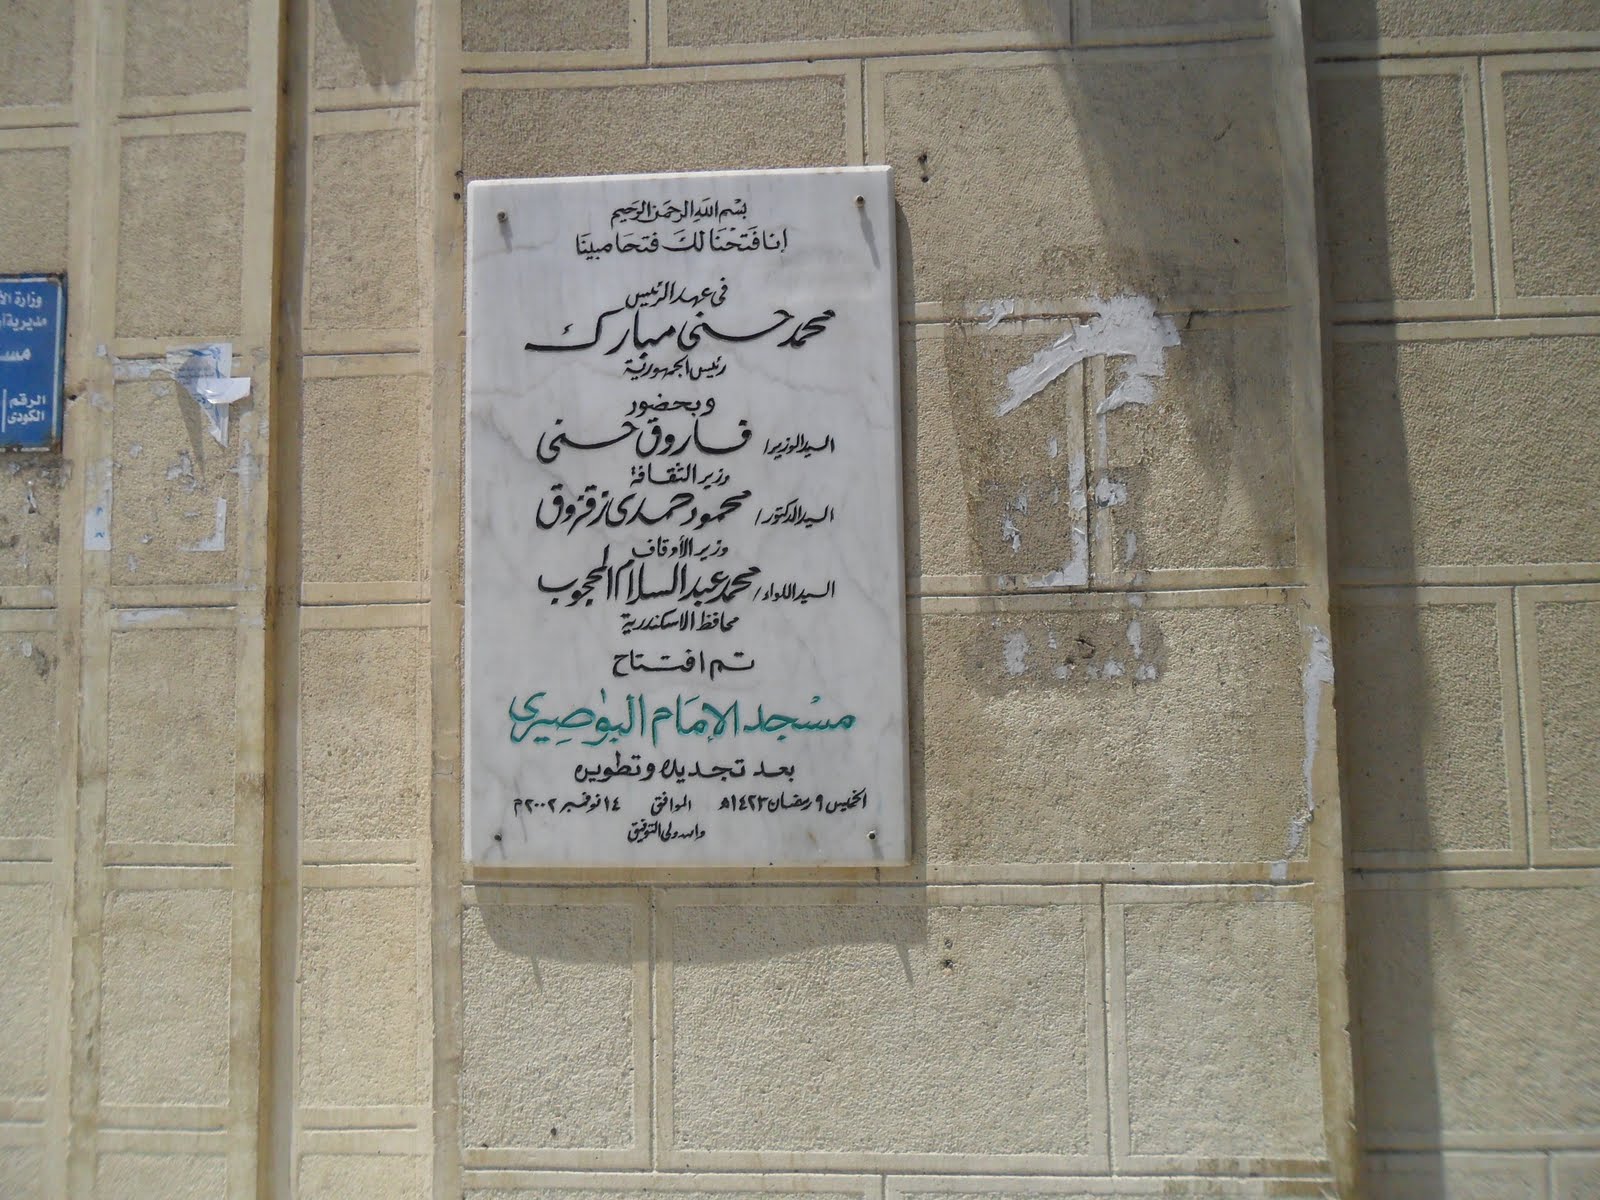 بسم الله الرحمن الرحيم
إنا فتحنا لك فتحا مبينا
في عهد الرئيس
محمد حسني مبارك
رئيس الجمهورية
وبحضور
السيد الوزير/ فاروق حسني
وزير الثقافة
السيد الدكتور/ محمود حمدي زقزوق
وزير الأوقاف
السيد اللواء/ محمد عبد السلام المحجوب
محافظ الاسكندرية
تم افتتاح
مسجد الإمام البوصيري
بعد تجديده وتطويره
الخميس ٩ رمضان ١٤٢٣هـ الموافق ١٤ نوفمبر ٢٠٠٢م
والله ولي التوفيق
وزارة
مديرية
الرقم
الكودى